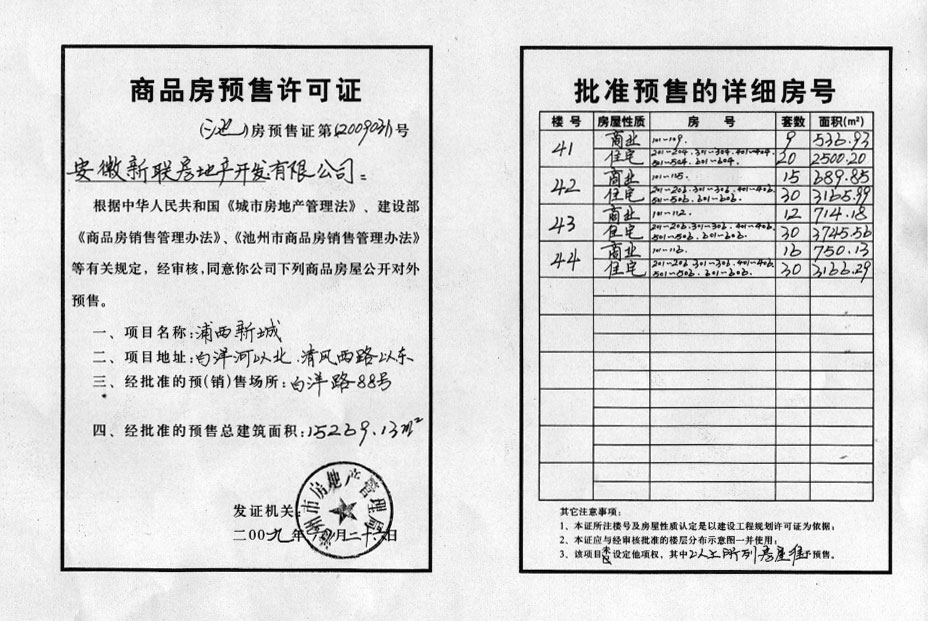 商品房预售许可证
(池)房预售证第(2009031)号
安徽新联房地产开发有限公司:
根据中华人民共和国《城市房地产管理法》、建设部
《商品房销售管理办法》、《池州市商品房销售管理办法》
等有关规定，经审核,同意你公司下列商品房屋公开对外
预售。
一、项目名称:浦西新城
二、项目地址:白洋河以北,清风西路以东
三、经批准的预(销)售场所:白洋路88号
四、经批准的预售总建筑面积:15269.13m²
发证机关:
池州市房地产管理局
二00九年 月二十 日
批准预售的详细房号
楼号 房屋性质 房号 套数 面积(m²)
41 商业 101-109. 9 536.93
住宅 201-204.301-304.401-404. 20 2500.20
501-504.601-604.
42 商业 101-115. 15 689.85
住宅 201-206.301-306.401-406. 30 3165.99
501-506.601-606.
43 商业 101-112. 12 714.18
住宅 201-206.301-306.401-406. 30 3745.56
501-506.601-606.
44 商业 101-116. 16 750.13
住宅 201-206.301-306.401-406. 30 3166.29
501-506.601-606.
其它注意事项:
1、本证所注楼号及房屋性质认定是以建设工程规划许可证为依据;
2、本证应与经审核批准的楼层分布示意图一并使用;
3、该项目未设定他项权，其中以上所列房屋准予预售。